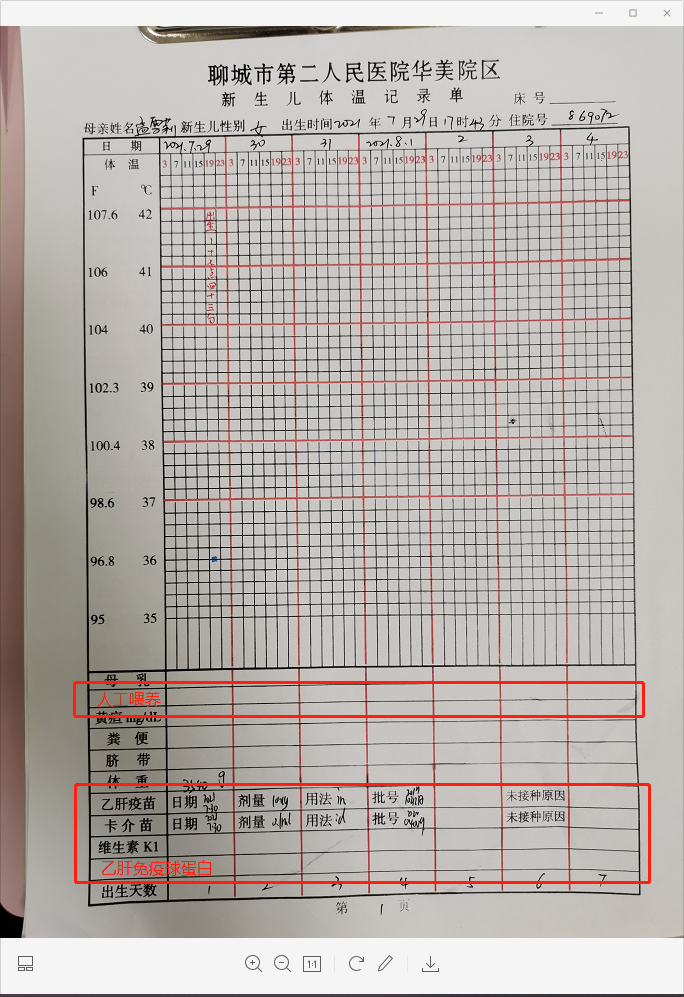 聊城市第二人民医院华美院区
新生儿体温记录单
床号
母亲姓名 新生儿性别 女 出生时间 2021 年 7 月 29 日 17 时 43 分 住院号 869072
日期 2021.7.29 30 31 2021.8.1 2 3 4
体温 3 7 11 15 19 23 3 7 11 15 19 23 3 7 11 15 19 23 3 7 11 15 19 23 3 7 11 15 19 23 3 7 11 15 19 23 3 7 11 15 19 23
F ℃
107.6 42
出生 一 十七点四十三分
106 41
104 40
102.3 39
100.4 38
98.6 37
96.8 36
95 35
母乳
人工喂养
黄疸 mg/dL
粪便
脐带
体重 g
乙肝疫苗 日期 剂量 10ug 用法 im 批号 未接种原因
卡介苗 日期 剂量 0.1ml 用法 id 批号 未接种原因
维生素 K1
乙肝免疫球蛋白
出生天数 1 2 3 4 5 6 7
第 1 页
1:1